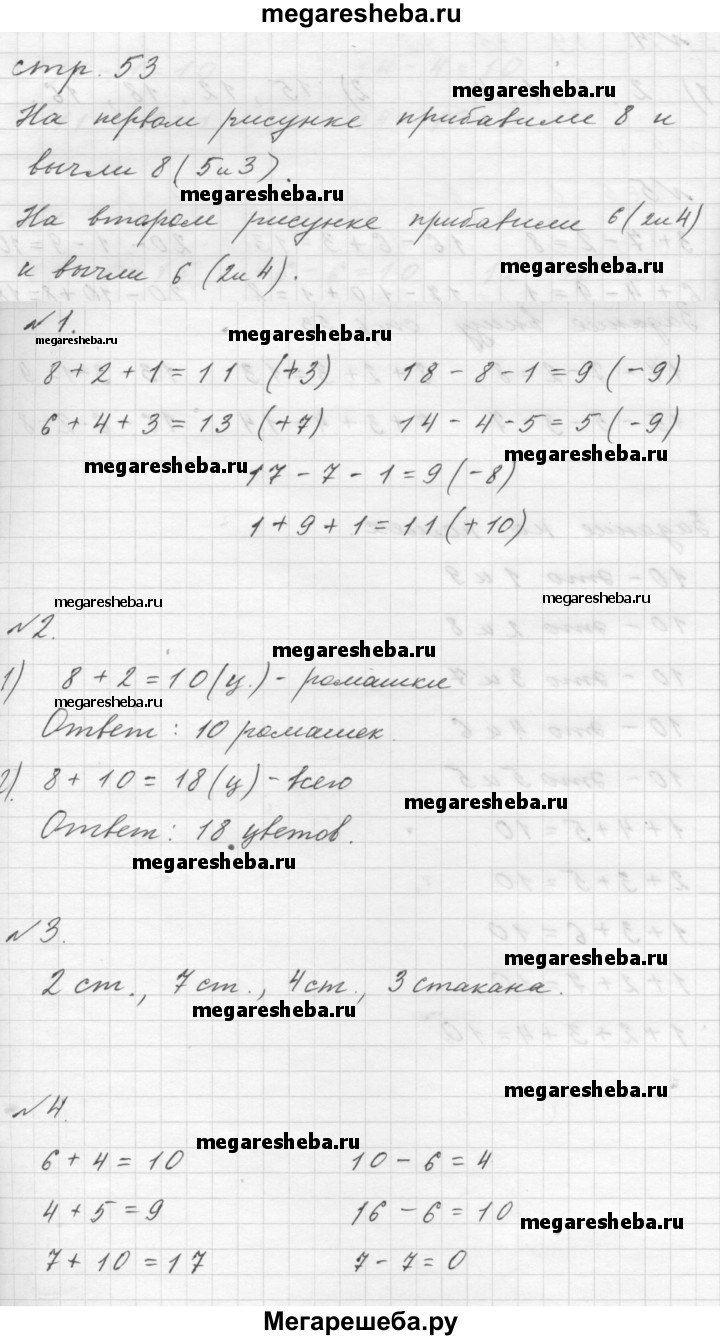 megaresheba.ru
стр. 53
megaresheba.ru
На первом рисунке прибавили 8 и
вычли 8 (5и3).
megaresheba.ru
На втором рисунке прибавили 6 (2и4)
и вычли 6 (2и4).
megaresheba.ru
№1.
megaresheba.ru
megaresheba.ru
8 + 2 + 1 = 11 (+3) 18 - 8 - 1 = 9 (-9)
6 + 4 + 3 = 13 (+7) 14 - 4 - 5 = 5 (-9)
megaresheba.ru
megaresheba.ru
17 - 7 - 1 = 9 (-8)
1 + 9 + 1 = 11 (+10)
megaresheba.ru
megaresheba.ru
№2.
megaresheba.ru
1) 8 + 2 = 10 (ц.) - ромашки
megaresheba.ru
Ответ: 10 ромашек.
2) 8 + 10 = 18 (ц) - всего
megaresheba.ru
Ответ: 18 цветов.
megaresheba.ru
№3.
megaresheba.ru
2 ст., 7 ст., 4 ст., 3 стакана.
megaresheba.ru
megaresheba.ru
№4.
megaresheba.ru
6 + 4 = 10 10 - 6 = 4
4 + 5 = 9 16 - 6 = 10
megaresheba.ru
7 + 10 = 17 7 - 7 = 0
Мегарешеба.ру